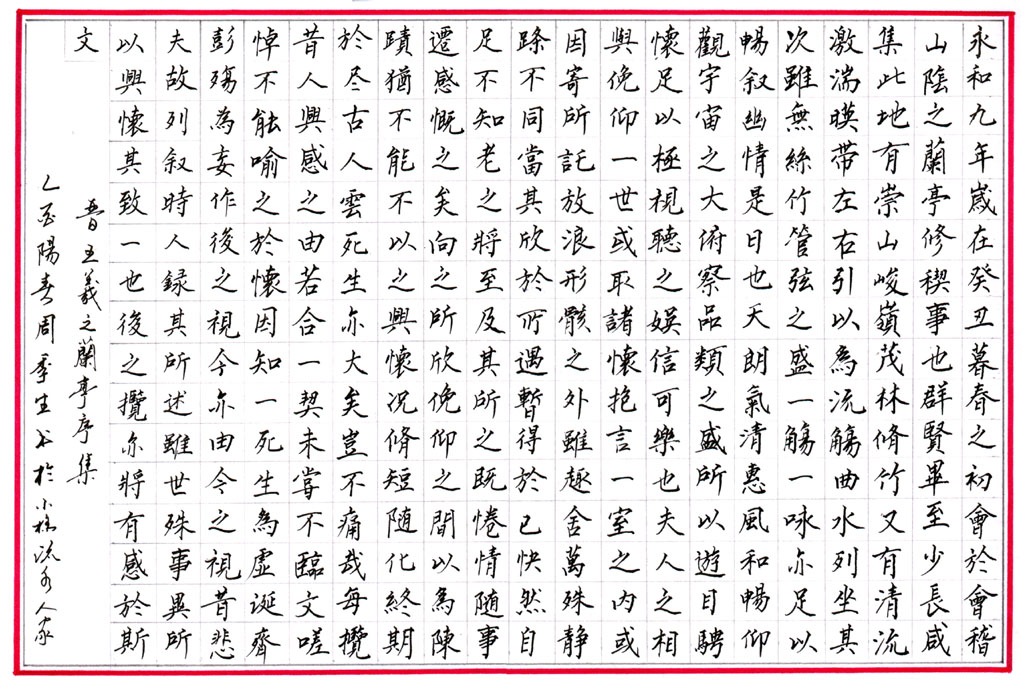 永和九年歲在癸丑暮春之初會於會稽
山陰之蘭亭修稧事也群賢畢至少長咸
集此地有崇山峻嶺茂林脩竹又有清流
激湍暎帶左右引以為流觴曲水列坐其
次雖無絲竹管弦之盛一觴一咏亦足以
暢叙幽情是日也天朗氣清惠風和暢仰
觀宇宙之大俯察品類之盛所以遊目騁
懷足以極視聽之娛信可樂也夫人之相
與俛仰一世或取諸懷抱言一室之內或
因寄所託放浪形骸之外雖趣舍萬殊静
躁不同當其欣於所遇暫得於己快然自
足不知老之將至及其所之既惓情随事
遷感慨之矣向之所欣俛仰之間以為陳
蹟猶不能不以之興懷況脩短随化終期
於尽古人雲死生亦大矣豈不痛哉每攬
昔人興感之由若合一契未嘗不臨文嗟
悼不能喻之於懷因知一死生為虛诞齊
彭殤為妄作後之視今亦由今之視昔悲
夫故列叙時人録其所述雖世殊事異所
以興懷其致一也後之攬亦將有感於斯
文
晋王羲之蘭亭序集
乙酉陽春周季生书於小桥流水人家